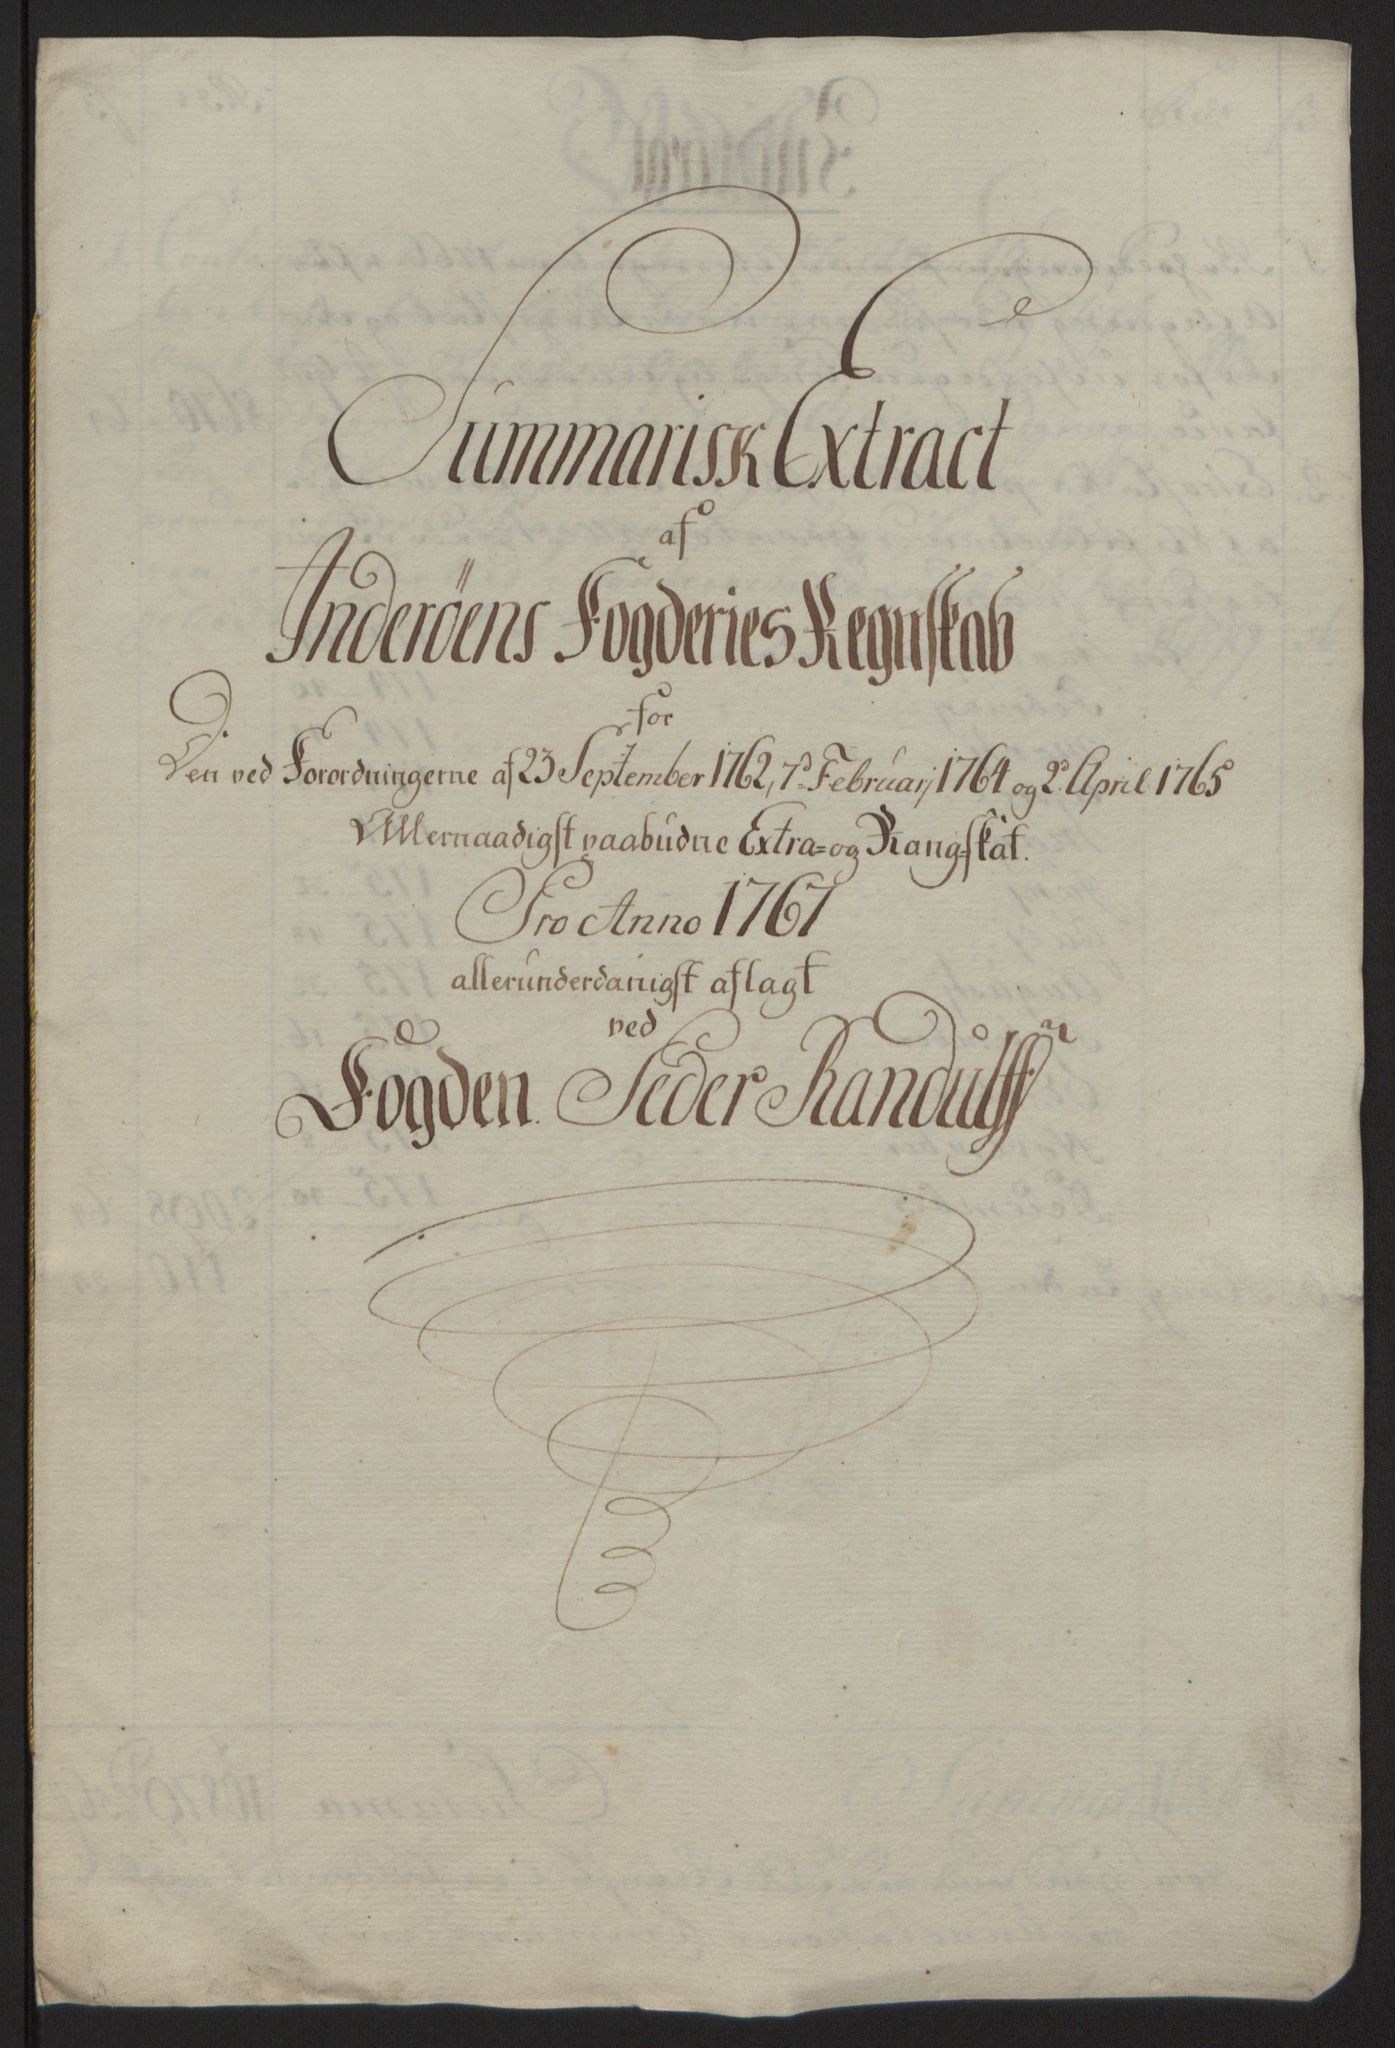 Summarisk Extract
af
Inderöens Fogderies Regnskab
for
Den ved Forordningerne af 23 September 1762, 7d Februarij 1764 og 2d April 1765
Allernaadigst paabudne Extra= og Rang=skat.
Pro Anno 1767
allerunderdanigst aflagt
ved
Fogden Peder Randulff